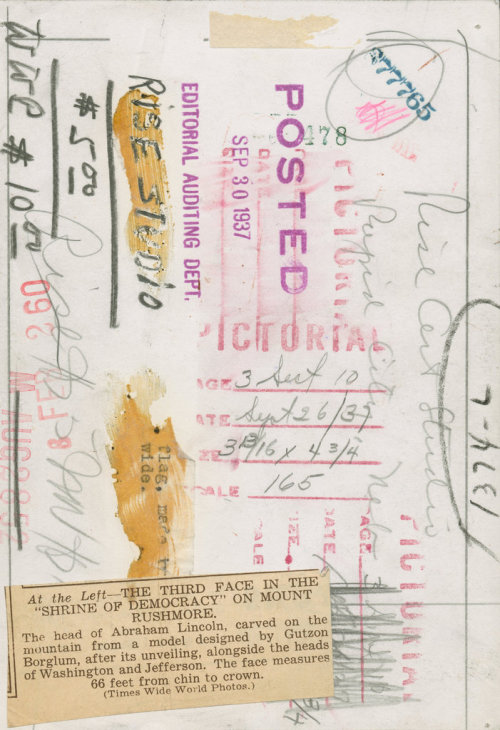 677765
WWP $ 10.00
$ 5.00
RISE STUDIO
EDITORIAL AUDITING DEPT.
SEP 30 1937
POSTED
478
Rise Art Studio
Rapid City
PICTORIAL
AGE 3 Sect 10
ATE Sept 26/37
ZE 3 13/16 x 4 3/4
ALE 165
PICTORIAL
AGE
ATE
ZE
ALE
8 FEB
flag,
wide.
1374-L
3/4
At the Left—THE THIRD FACE IN THE
"SHRINE OF DEMOCRACY" ON MOUNT
RUSHMORE.
The head of Abraham Lincoln, carved on the
mountain from a model designed by Gutzon
Borglum, after its unveiling, alongside the heads
of Washington and Jefferson. The face measures
66 feet from chin to crown.
(Times Wide World Photos.)